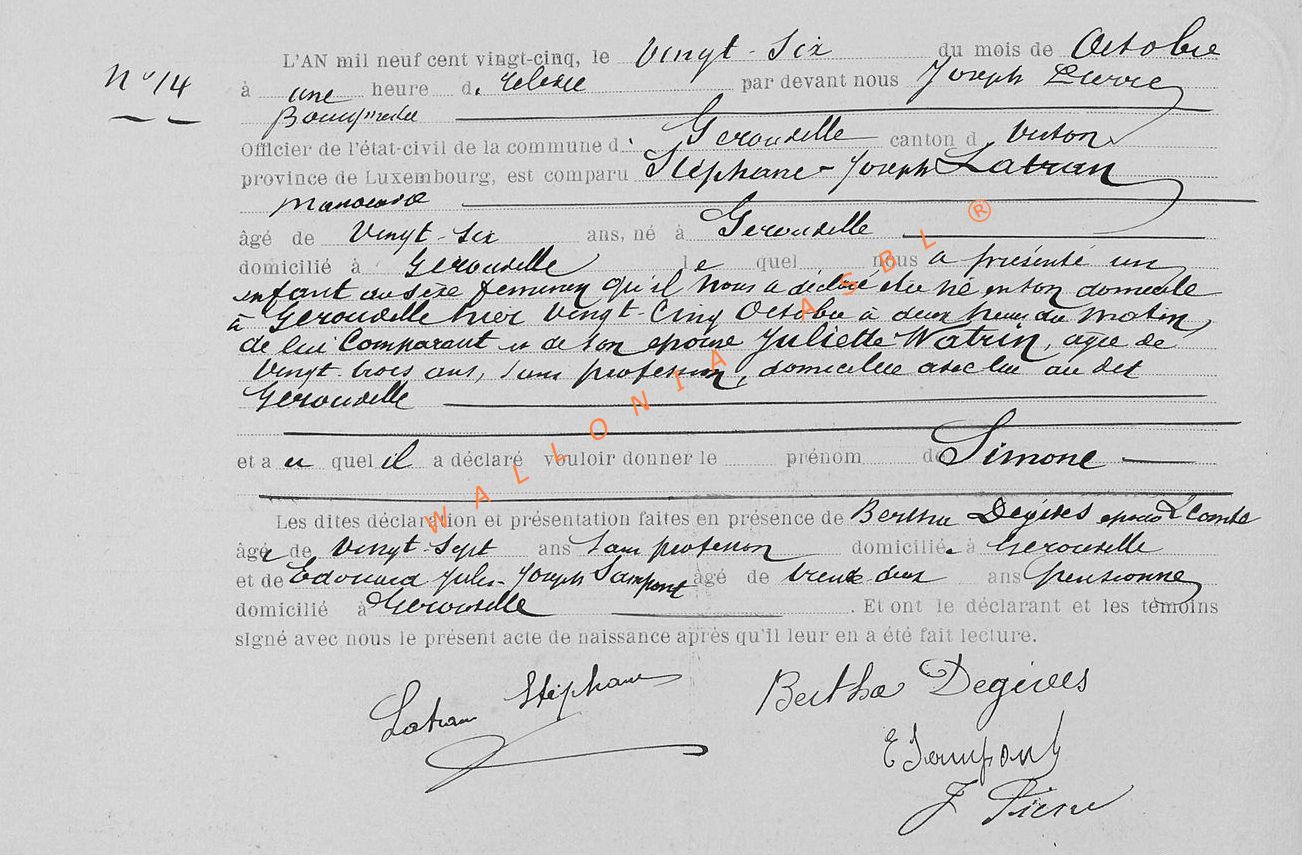 N° 14
L'AN mil neuf cent vingt-cinq, le Vingt-Six du mois de Octobre
à une heure d. relevée par devant nous Joseph Pierre
Bourgmestre
Officier de l'état-civil de la commune d. Gerouville canton d Virton
province de Luxembourg, est comparu Stéphane-Joseph Latran
manoeuvre
âgé de Vingt-Six ans, né à Gerouville
domicilié à Gerouville le quel nous a présenté un
enfant du sexe feminin qu'il nous a déclaré être né en son domicile
à Gerouville hier Vingt-Cinq Octobre à deux heures du matin,
de lui Comparant et de son epouse Juliette Watrin, agée de
Vingt-trois ans, sans profession, domiciliée avec lui au dit
Gerouville
et a u quel il a déclaré vouloir donner le prénom de Simone
Les dites déclaration et présentation faites en présence de Bertha Degives epouse
âgée de Vingt-Sept ans Sans profession domiciliée à Gerouville
et de Edouard Jules-Joseph Sampont âgé de trente-deux ans pensionné
domicilié à Gerouville . Et ont le déclarant et les témoins
signé avec nous le présent acte de naissance après qu'il leur en a été fait lecture.
Latran Stéphane
Bertha Degives
E Sampont
J Pierre
WALLONIA ASBL ®